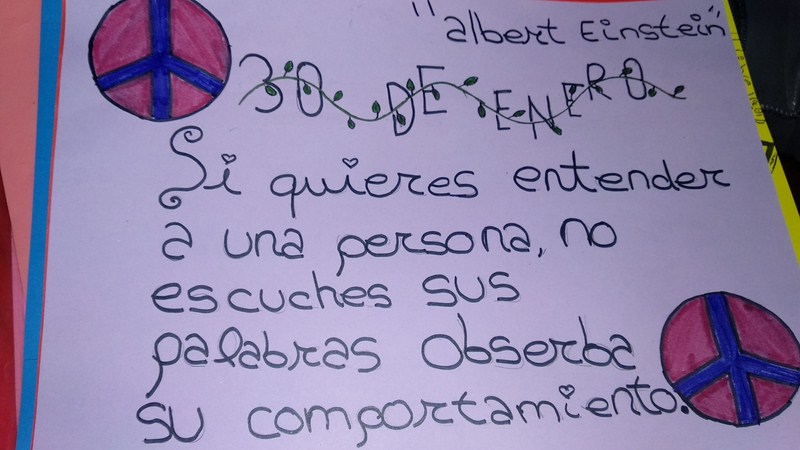 "albert Einstein"
30 DE ENERO
Si quieres entender
a una persona, no
escuches sus
palabras obserba
su comportamiento.